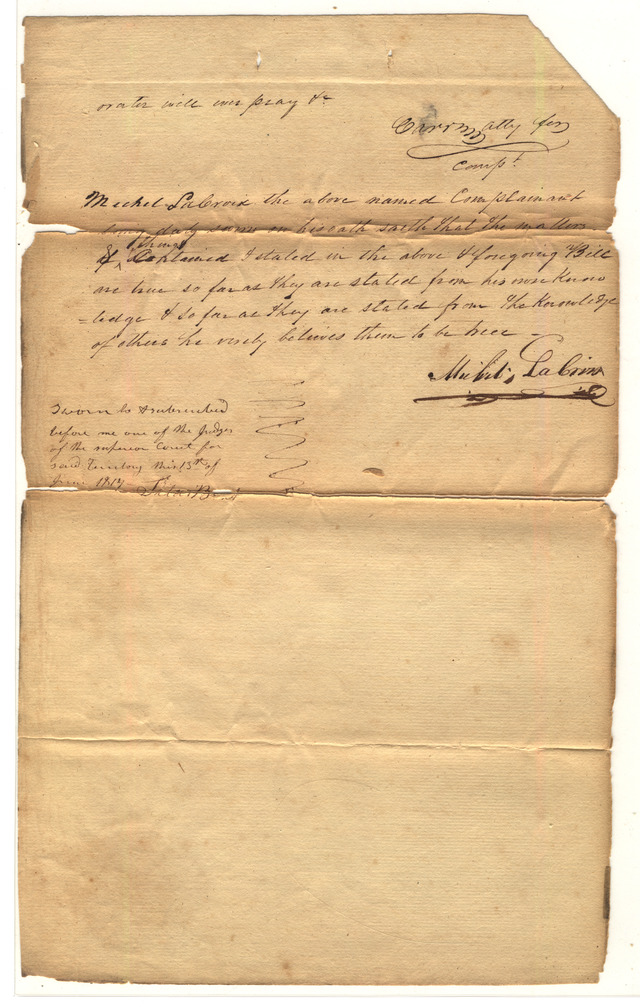 orator will ever pray &c
Carr Atty for
Compt
Michel LaCroix the above named Complainant
being duly sworn on his oath saith that the matters
& things Contained & stated in the above & foregoing Bill
are true so far as they are stated from his own Know
=ledge & so far as they are stated from the Knowledge
of others he verily believes them to be true -
Michel LaCroix
Sworn to & subscribed
before me one of the Judges
of the superior Court for
said Territory this 13th of
June 1814